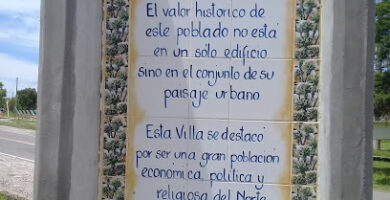 El valor historico de
este poblado no està
en un sòlo edificio
sino en el conjunto de su
paisaje urbano
Esta Villa se destacò
por ser una gran poblacion
economica, politica y
religiosa del Norte